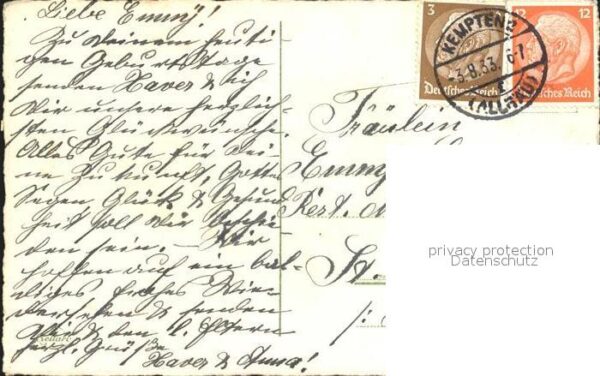 Liebe Emmy!
Zu Deinem heuti-
gen Geburtstage
senden Xaver & ich
Dir unsere herzlich-
sten Glückwünsche.
Alles Gute für Dei-
ne Zukunft, Gottes
Segen Glück & Gesund
heit soll Dir beschie
den sein. — Wir
hoffen auf ein bal-
diges frohes Wie-
dersehen & senden
Dir & den l. Eltern
herzl. Grüße
Xaver & Anna!
3
Deutsches Reich
12 12
Deutsches Reich
KEMPTEN 2
3.8.33. 6-7
(ALLGÄU)
Fräulein
Emmy
Rest.
St.
privacy protection
Datenschutz